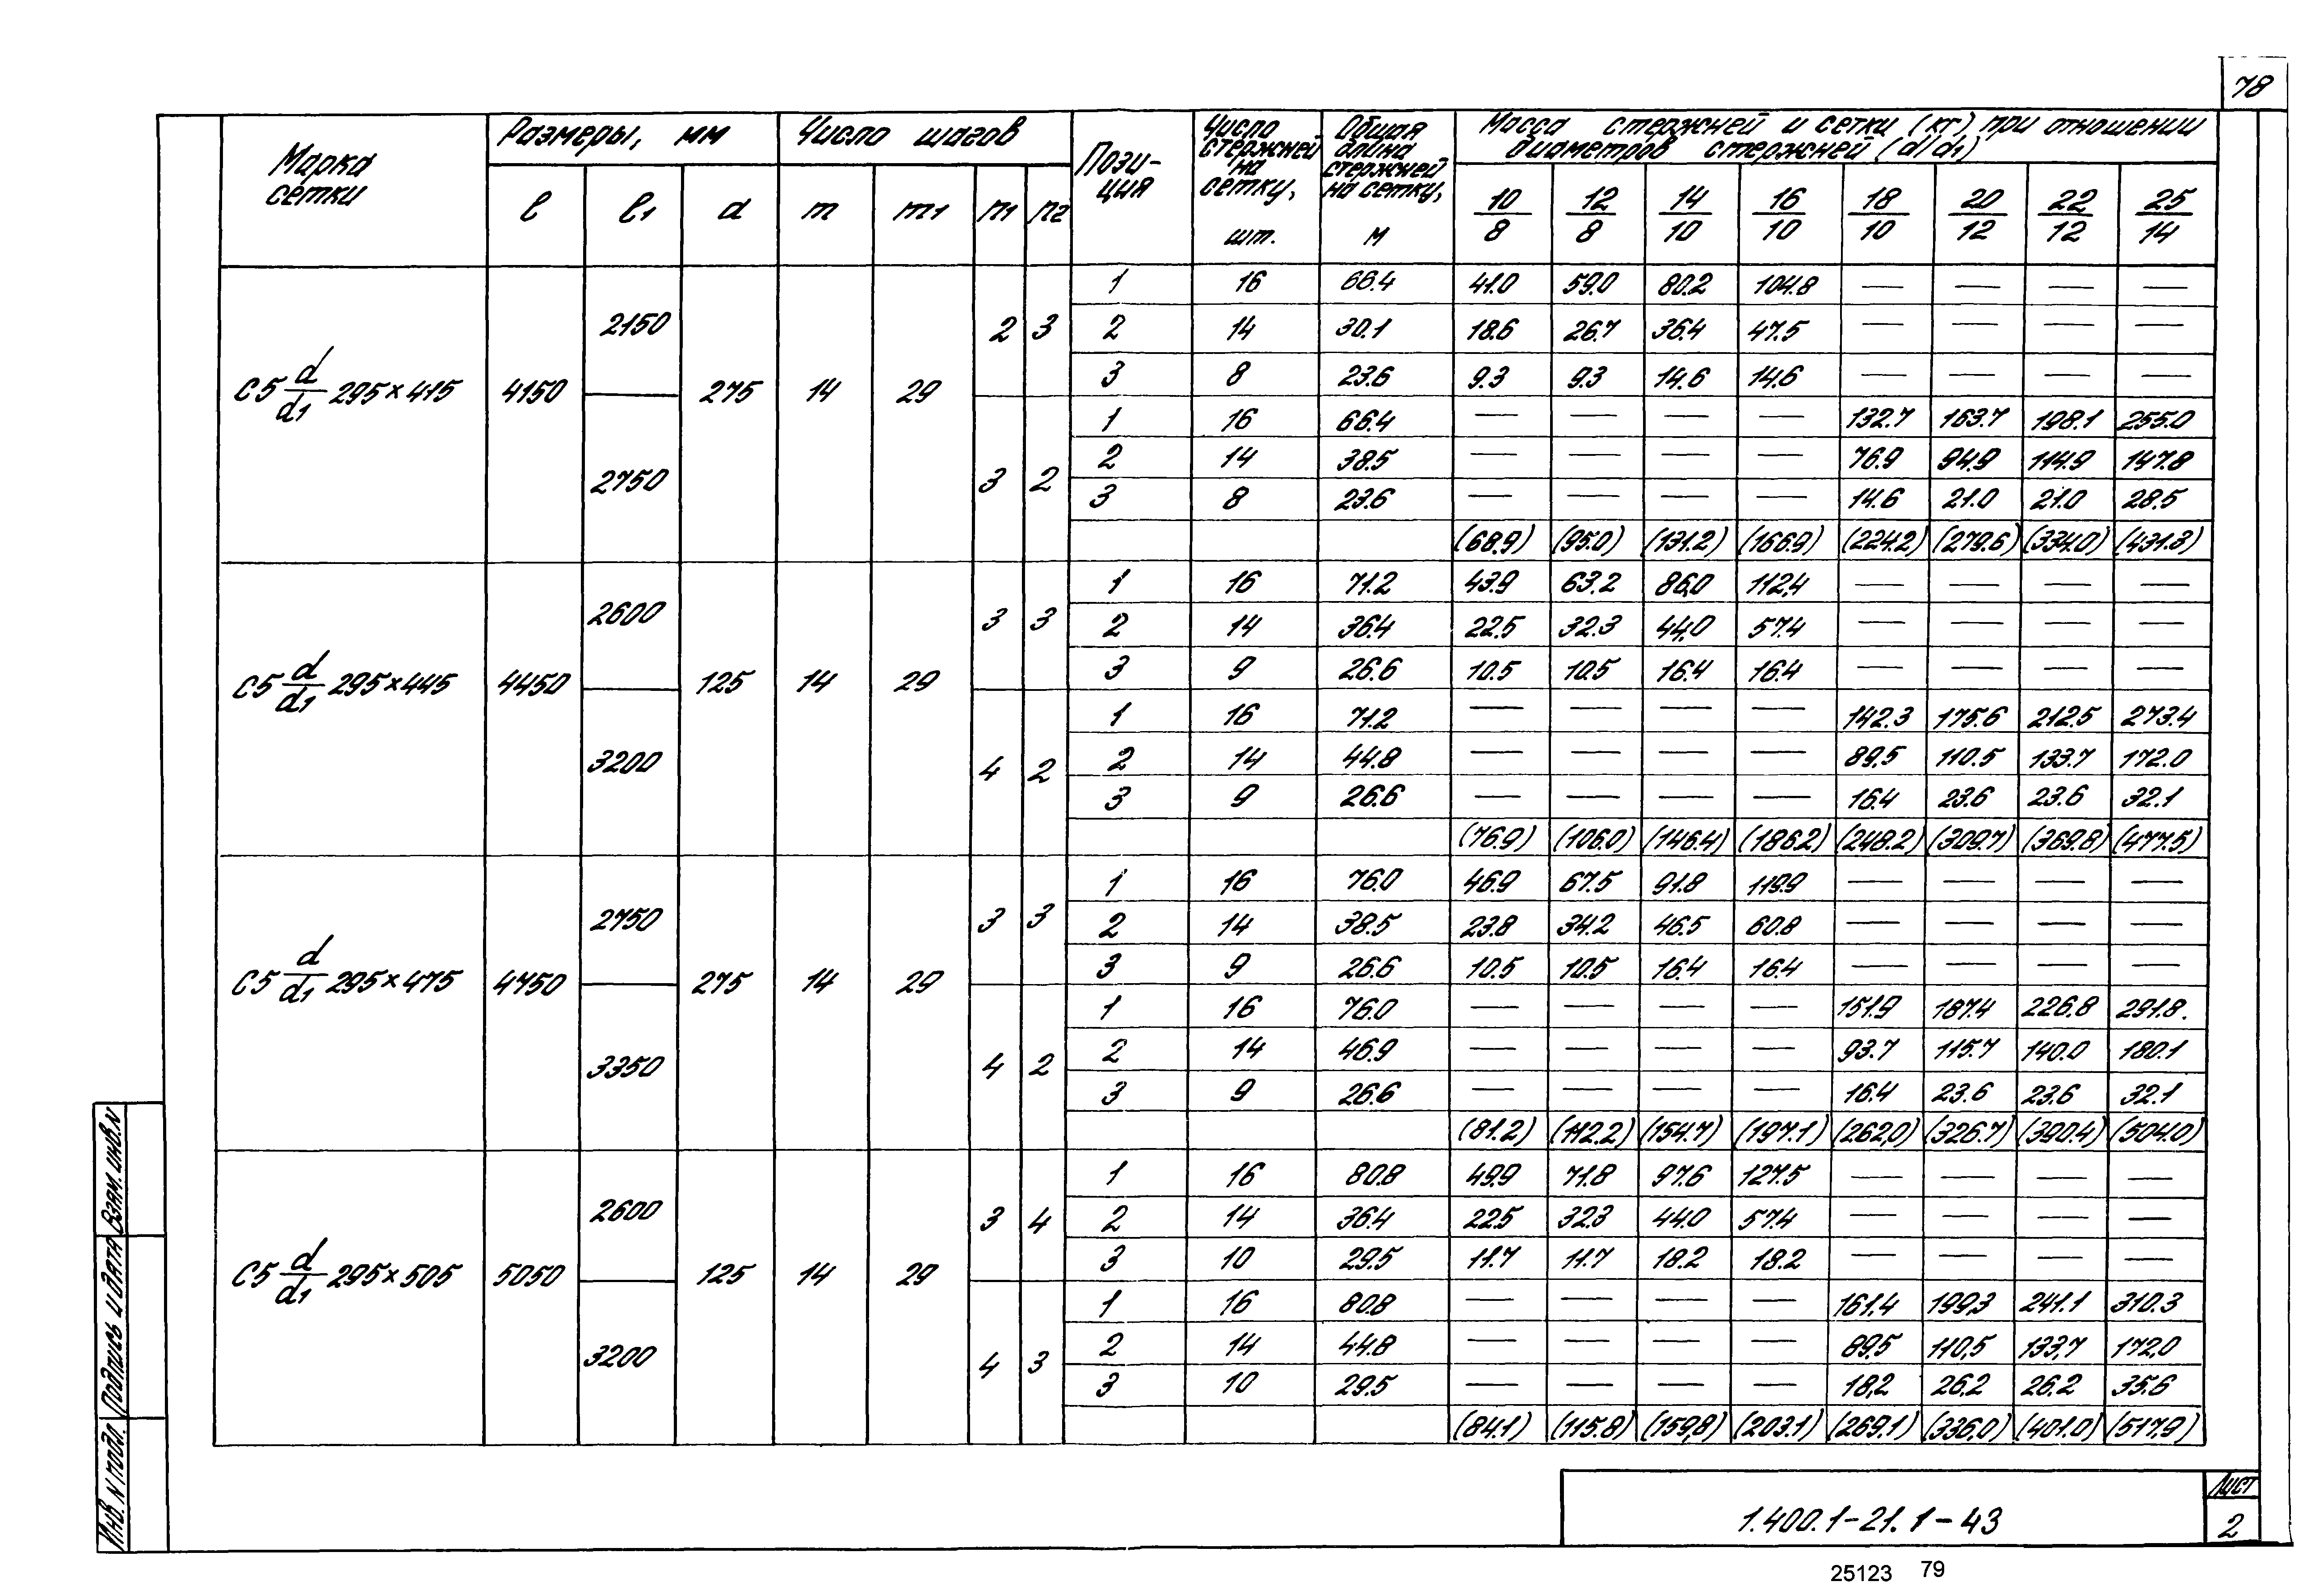 78
Марка сетки | Размеры, мм | Число шагов | Пози-ция | Число стержней на сетку, шт. | Общая длина стержней на сетку, м | Масса стержней и сетки (кг) при отношении диаметров стержней (d/d1)
l | l1 | a | m | m1 | n1 | n2 | 10/8 | 12/8 | 14/10 | 16/10 | 18/10 | 20/12 | 22/12 | 25/14
С5 d/d1 295×415 | 4150 | 2150 | 275 | 14 | 29 | 2 | 3
1 | 16 | 66.4 | 41.0 | 59.0 | 80.2 | 104.8 | — | — | — | —
2 | 14 | 30.1 | 18.6 | 26.7 | 36.4 | 47.5 | — | — | — | —
3 | 8 | 23.6 | 9.3 | 9.3 | 14.6 | 14.6 | — | — | — | —
2750 | 3 | 2
1 | 16 | 66.4 | — | — | — | — | 132.7 | 163.7 | 198.1 | 255.0
2 | 14 | 38.5 | — | — | — | — | 76.9 | 94.9 | 114.9 | 147.8
3 | 8 | 23.6 | — | — | — | — | 14.6 | 21.0 | 21.0 | 28.5
(68.9) | (95.0) | (131.2) | (166.9) | (224.2) | (279.6) | (334.0) | (431.3)
С5 d/d1 295×445 | 4450 | 2600 | 125 | 14 | 29 | 3 | 3
1 | 16 | 71.2 | 43.9 | 63.2 | 86,0 | 112,4 | — | — | — | —
2 | 14 | 36.4 | 22.5 | 32.3 | 44,0 | 57.4 | — | — | — | —
3 | 9 | 26.6 | 10.5 | 10.5 | 16.4 | 16.4 | — | — | — | —
3200 | 4 | 2
1 | 16 | 71.2 | — | — | — | — | 142.3 | 175.6 | 212.5 | 273.4
2 | 14 | 44.8 | — | — | — | — | 89,5 | 110.5 | 133.7 | 172.0
3 | 9 | 26.6 | — | — | — | — | 16.4 | 23.6 | 23.6 | 32.1
(76.9) | (106.0) | (146.4) | (186.2) | (248.2) | (309.7) | (369.8) | (477.5)
С5 d/d1 295×475 | 4750 | 2750 | 275 | 14 | 29 | 3 | 3
1 | 16 | 76.0 | 46.9 | 67.5 | 91.8 | 119.9 | — | — | — | —
2 | 14 | 38.5 | 23.8 | 34.2 | 46.5 | 60.8 | — | — | — | —
3 | 9 | 26.6 | 10.5 | 10.5 | 16.4 | 16.4 | — | — | — | —
3350 | 4 | 2
1 | 16 | 76.0 | — | — | — | — | 151.9 | 187.4 | 226.8 | 291.8.
2 | 14 | 46.9 | — | — | — | — | 93.7 | 115.7 | 140.0 | 180.1
3 | 9 | 26.6 | — | — | — | — | 16.4 | 23.6 | 23.6 | 32.1
(81.2) | (112.2) | (154.7) | (197.1) | (262,0) | (326.7) | (390.4) | (504.0)
С5 d/d1 295×505 | 5050 | 2600 | 125 | 14 | 29 | 3 | 4
1 | 16 | 80.8 | 49.9 | 71.8 | 97.6 | 127.5 | — | — | — | —
2 | 14 | 36.4 | 22.5 | 32.3 | 44.0 | 57.4 | — | — | — | —
3 | 10 | 29.5 | 11.7 | 11.7 | 18.2 | 18.2 | — | — | — | —
3200 | 4 | 3
1 | 16 | 80.8 | — | — | — | — | 161.4 | 199,3 | 241.1 | 310.3
2 | 14 | 44.8 | — | — | — | — | 89,5 | 110,5 | 133,7 | 172,0
3 | 10 | 29.5 | — | — | — | — | 18,2 | 26.2 | 26.2 | 35.6
(84.1) | (115.8) | (159,8) | (203.1) | (269.1) | (336,0) | (401.0) | (517.9)
Инв. N подл. | Подпись и дата | Взам. инв. N
1.400.1-21.1-43
Лист
2
25123 79